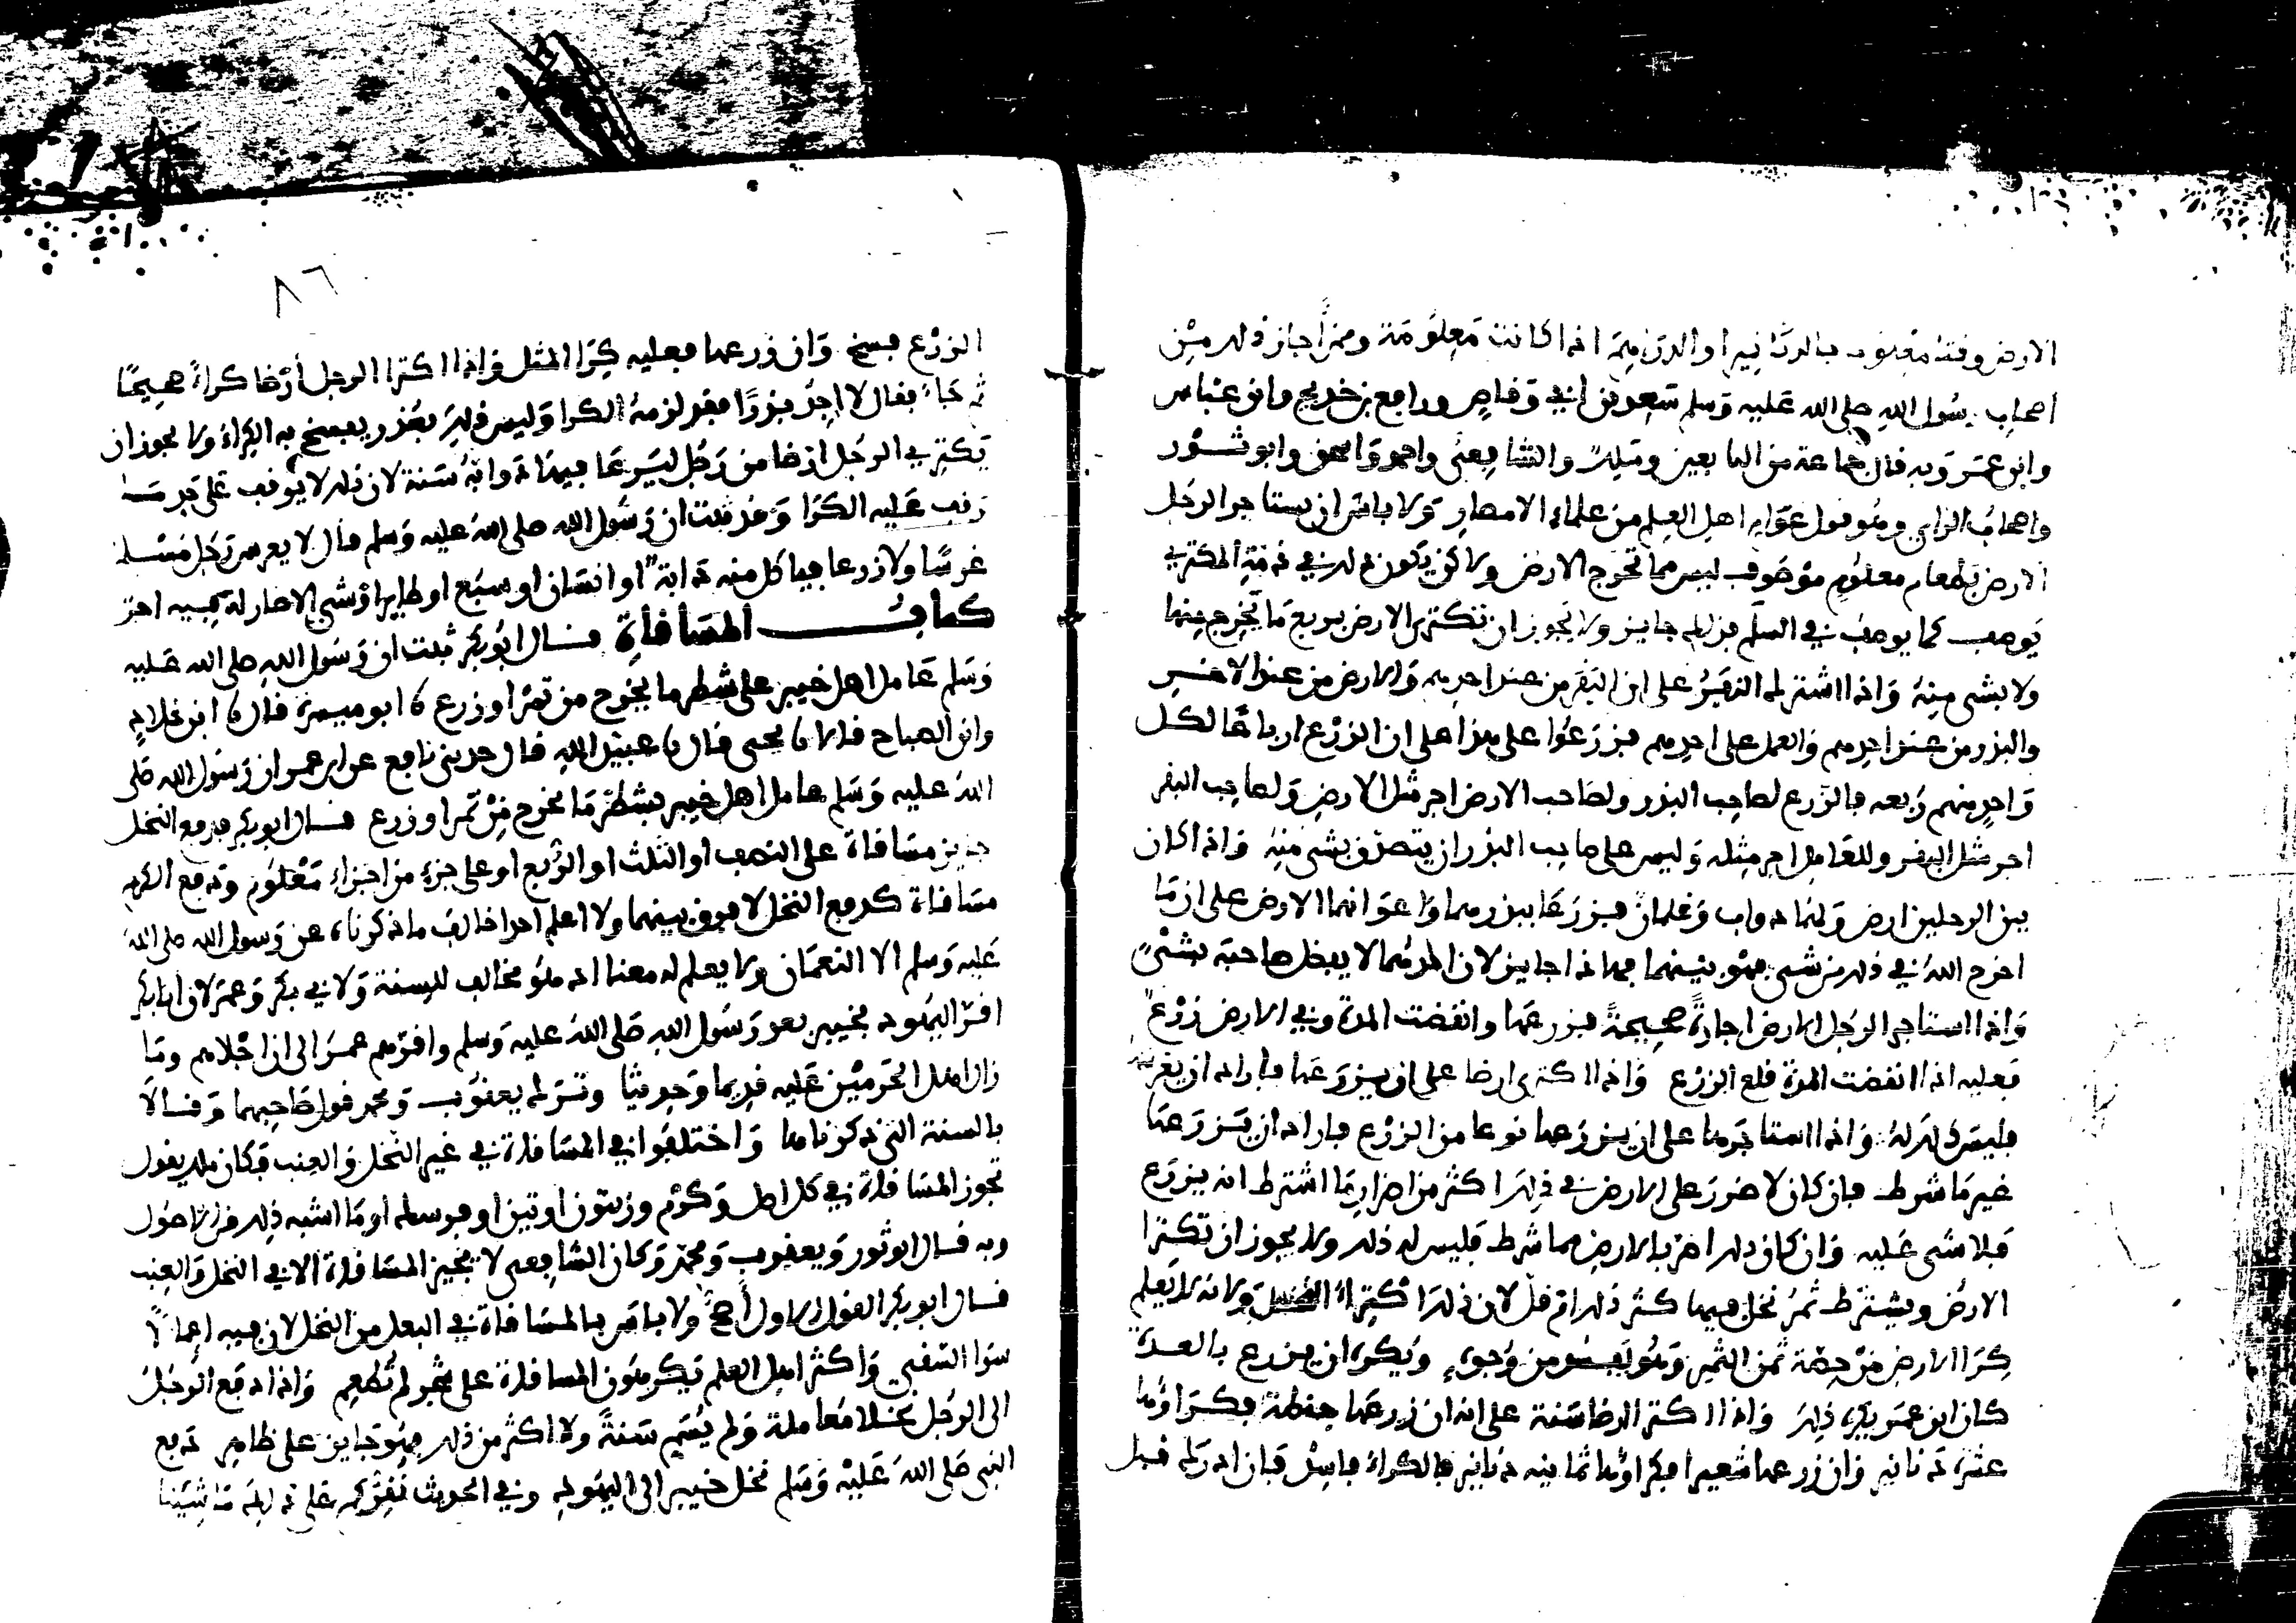 الارض وقتا معلوما بالدنانير او الدراهم اذا كانت معلومة وممن اجاز ذلك من
اصحاب رسول الله صلى الله عليه وسلم سعد بن ابي وقاص ورافع بن خديج وابن عباس
وابن عمر وبه قال جماعة من التابعين وملك والشافعي واحمد واسحق وابو ثور
واصحاب الراي وهو قول عوام اهل العلم من علماء الامصار ولا باس ان يستاجر الرجل
الارض بطعام معلوم موصوف ليس مما تخرج الارض ولاكن يكون ذلك في ذمة المكتري
يوصف كما يوصف في السلم فذلك جايز ولا يجوز ان تكترى الارض بربع ما يخرج منها
ولا بشي منه واذا اشترك النفر على ان البقر من عند احدهم والارض من عند الاخر
والبذر من عند احدهم والعمل على احدهم فزرعوا على هذا على ان الزرع ارباعا لكل
واحد منهم ربعه فالزرع لصاحب البذر ولصاحب الارض اجر مثل الارض ولصاحب البقر
اجر مثل البقر وللعامل اجر مثله وليس على صاحب البذر ان يتصدق بشي منه واذا كان
بين الرجلين ارض ولهما دواب وغلمان فزرعا ببذرهما واعوانهما الارض على ان ما
اخرج الله في ذلك من شي فهو بينهما فهاذا جايز لان احدهما لا يفضل صاحبه بشي
واذا استاجر الرجل الارض اجارة صحيحة فزرعها وانقضت المدة وفي الارض زرع
فعليه اذا انقضت المدة قلع الزرع واذا اكترى ارضا على ان يزرعها فاراد ان يغرسها
فليس ذلك له واذا استاجرها على ان يزرعها نوعا من الزرع فاراد ان يزرعها
غير ما شرط فان كان لا ضرر على الارض في ذلك اكثر من اضرار ما اشترط انه يزرع
فلا شي عليه وان كان ذلك اضر بالارض مما شرط فليس له ذلك ولا يجوز ان تكترا
الارض ويشترط ثمر نخل فيها كثر ذلك ام قل لان ذلك اكتراء النخل ولانه لا يعلم
كرا الارض من حصة ثمن الثمر وهو يفسد من وجوه ويكره ان يزرع بالعذرة
كان ابن عمر يكره ذلك واذا اكترا ارضا سنة على انه ان زرعها حنطة فكراوها
عشرة دنانير وان زرعها شعيرا فكراوها ثمانيه دنانير فالكراء فاسد فان ادرك قبل
٨٦
الزرع فسخ وان زرعها فعليه كرا المثل واذا اكترا الرجل ارضا كراء صحيحا
ثم جاء فقال لا اجد بذرا فقد لزمه الكرا وليس ذلك بعذر يفسخ به الكراء ولا يجوز ان
يكتري الرجل ارضا من رجل ليرعا فيها دوابه سنة لان ذلك لا يوقف على حد
عليه الكرا وقد ثبت ان رسول الله صلى الله عليه وسلم قال لا يغرس رجل مسلم
غرسا ولا زرعا فياكل منه دابة او انسان او سبع او طاير او شي الا صار له فيه اجر
كتاب المساقاة قال ابو بكر ثبت ان رسول الله صلى الله عليه
وسلم عامل اهل خيبر على شطر ما يخرج من تمر او زرع نا ابو ميسرة قال نا ابن خلاد
وابن الصباح قالا نا يحيى قال نا عبيد الله قال حدثني نافع عن ابن عمر ان رسول الله صلى
الله عليه وسلم عامل اهل خيبر بشطر ما يخرج من تمر او زرع قال ابو بكر فدفع النخل
جايز مساقاة على النصف او الثلث او الربع او على جزء من اجزاء معلوم ودفع الكرم
مساقاة كدفع النخل لا فرق بينهما ولا اعلم احدا خالف ما ذكرناه عن رسول الله صلى الله
عليه وسلم الا النعمان ولا يعلم له معنا اذ هو مخالف للسنة ولابي بكر وعمر لان ابا بكر
اقر اليهود بخيبر بعد رسول الله صلى الله عليه وسلم واقرهم عمر الى ان اجلاهم وما
زال اهل الحرمين عليه قديما وحديثا وترك يعقوب ومحمد قول صاحبهما وقالا
بالسنة التي ذكرناها واختلفوا في المساقاة في غير النخل والعنب فكان ملك يقول
تجوز المساقاة في كل اصل وكرم وزيتون او تين او فرسك او ما اشبه ذلك من الاصول
وبه قال ابو ثور ويعقوب ومحمد وكان الشافعي لا يجيز المساقاة الا في النخل والعنب
قال ابو بكر القول الاول اصح ولا باس بالمساقاة في البعل من النخل لان فيه اعمالا
سوا السقي واكثر اهل العلم يكرهون المساقاة على شجر لم تطعم واذا دفع الرجل
الى الرجل نخلا معاملة ولم يسم سنة ولا اكثر من ذلك فهو جايز على ظاهر دفع
النبي صلى الله عليه وسلم نخل خيبر الى اليهود وفي الحديث نقركم على ذلك ما شينا